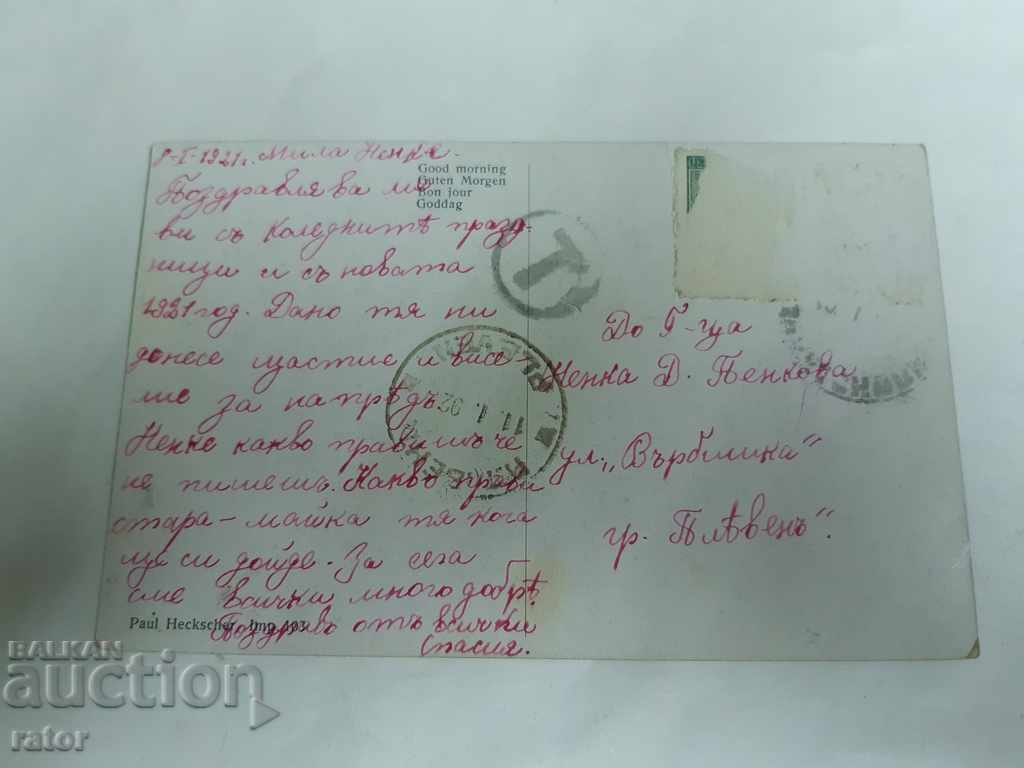 I-1921г. Мила Ненке.
Поздравлява ме
ви съ коледнитѣ празд-
ници и съ новата
1921 год. Дано тя ни
донесе щастие и висе
лие за напрѣдъ
Ненке какво правишъ че
не пишешъ. Какво прави
стара-майка тя кога
ще си дойде. За сега
сме всички много добрѣ.
Поздравъ отъ всички
Спасия.
Good morning
Guten Morgen
Bon jour
Goddag
T
ПЛѢВЕНЪ
11. 1. 92
До Г-ца
Ненка Д. Пенкова
ул. „Върбишка“
гр. Плѣвенъ“.
Paul Heckscher, Imp. 403
BALKAN
auction
rator